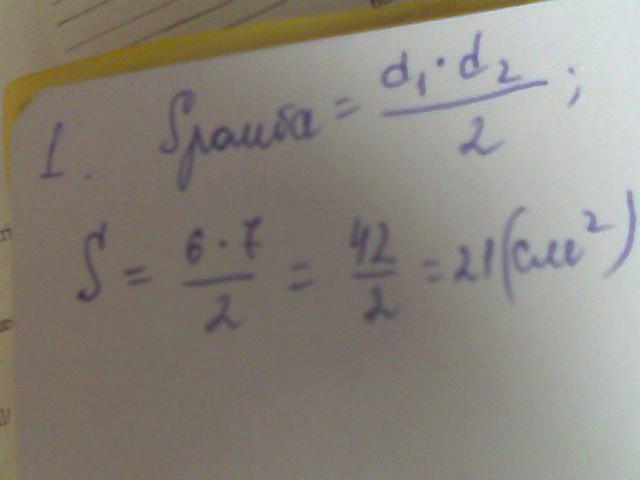 1. Sромба = d₁·d₂/2;
S = 6·7/2 = 42/2 = 21(см²)